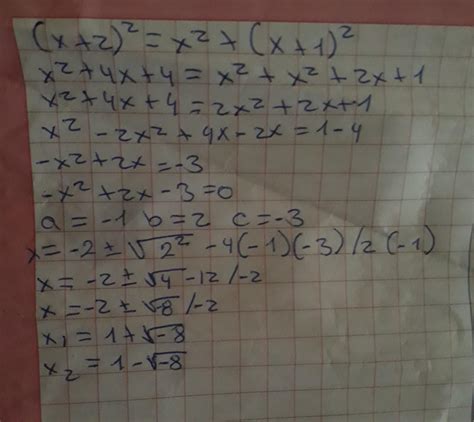 (x+2)² = x² + (x+1)²
x² + 4x + 4 = x² + x² + 2x + 1
x² + 4x + 4 = 2x² + 2x + 1
x² - 2x² + 4x - 2x = 1 - 4
-x² + 2x = -3
-x² + 2x - 3 = 0
a = -1 b = 2 c = -3
x = -2 ± √2² - 4(-1)(-3) / 2(-1)
x = -2 ± √4 - 12 / -2
x = -2 ± √-8 / -2
x₁ = 1 + √-8
x₂ = 1 - √-8